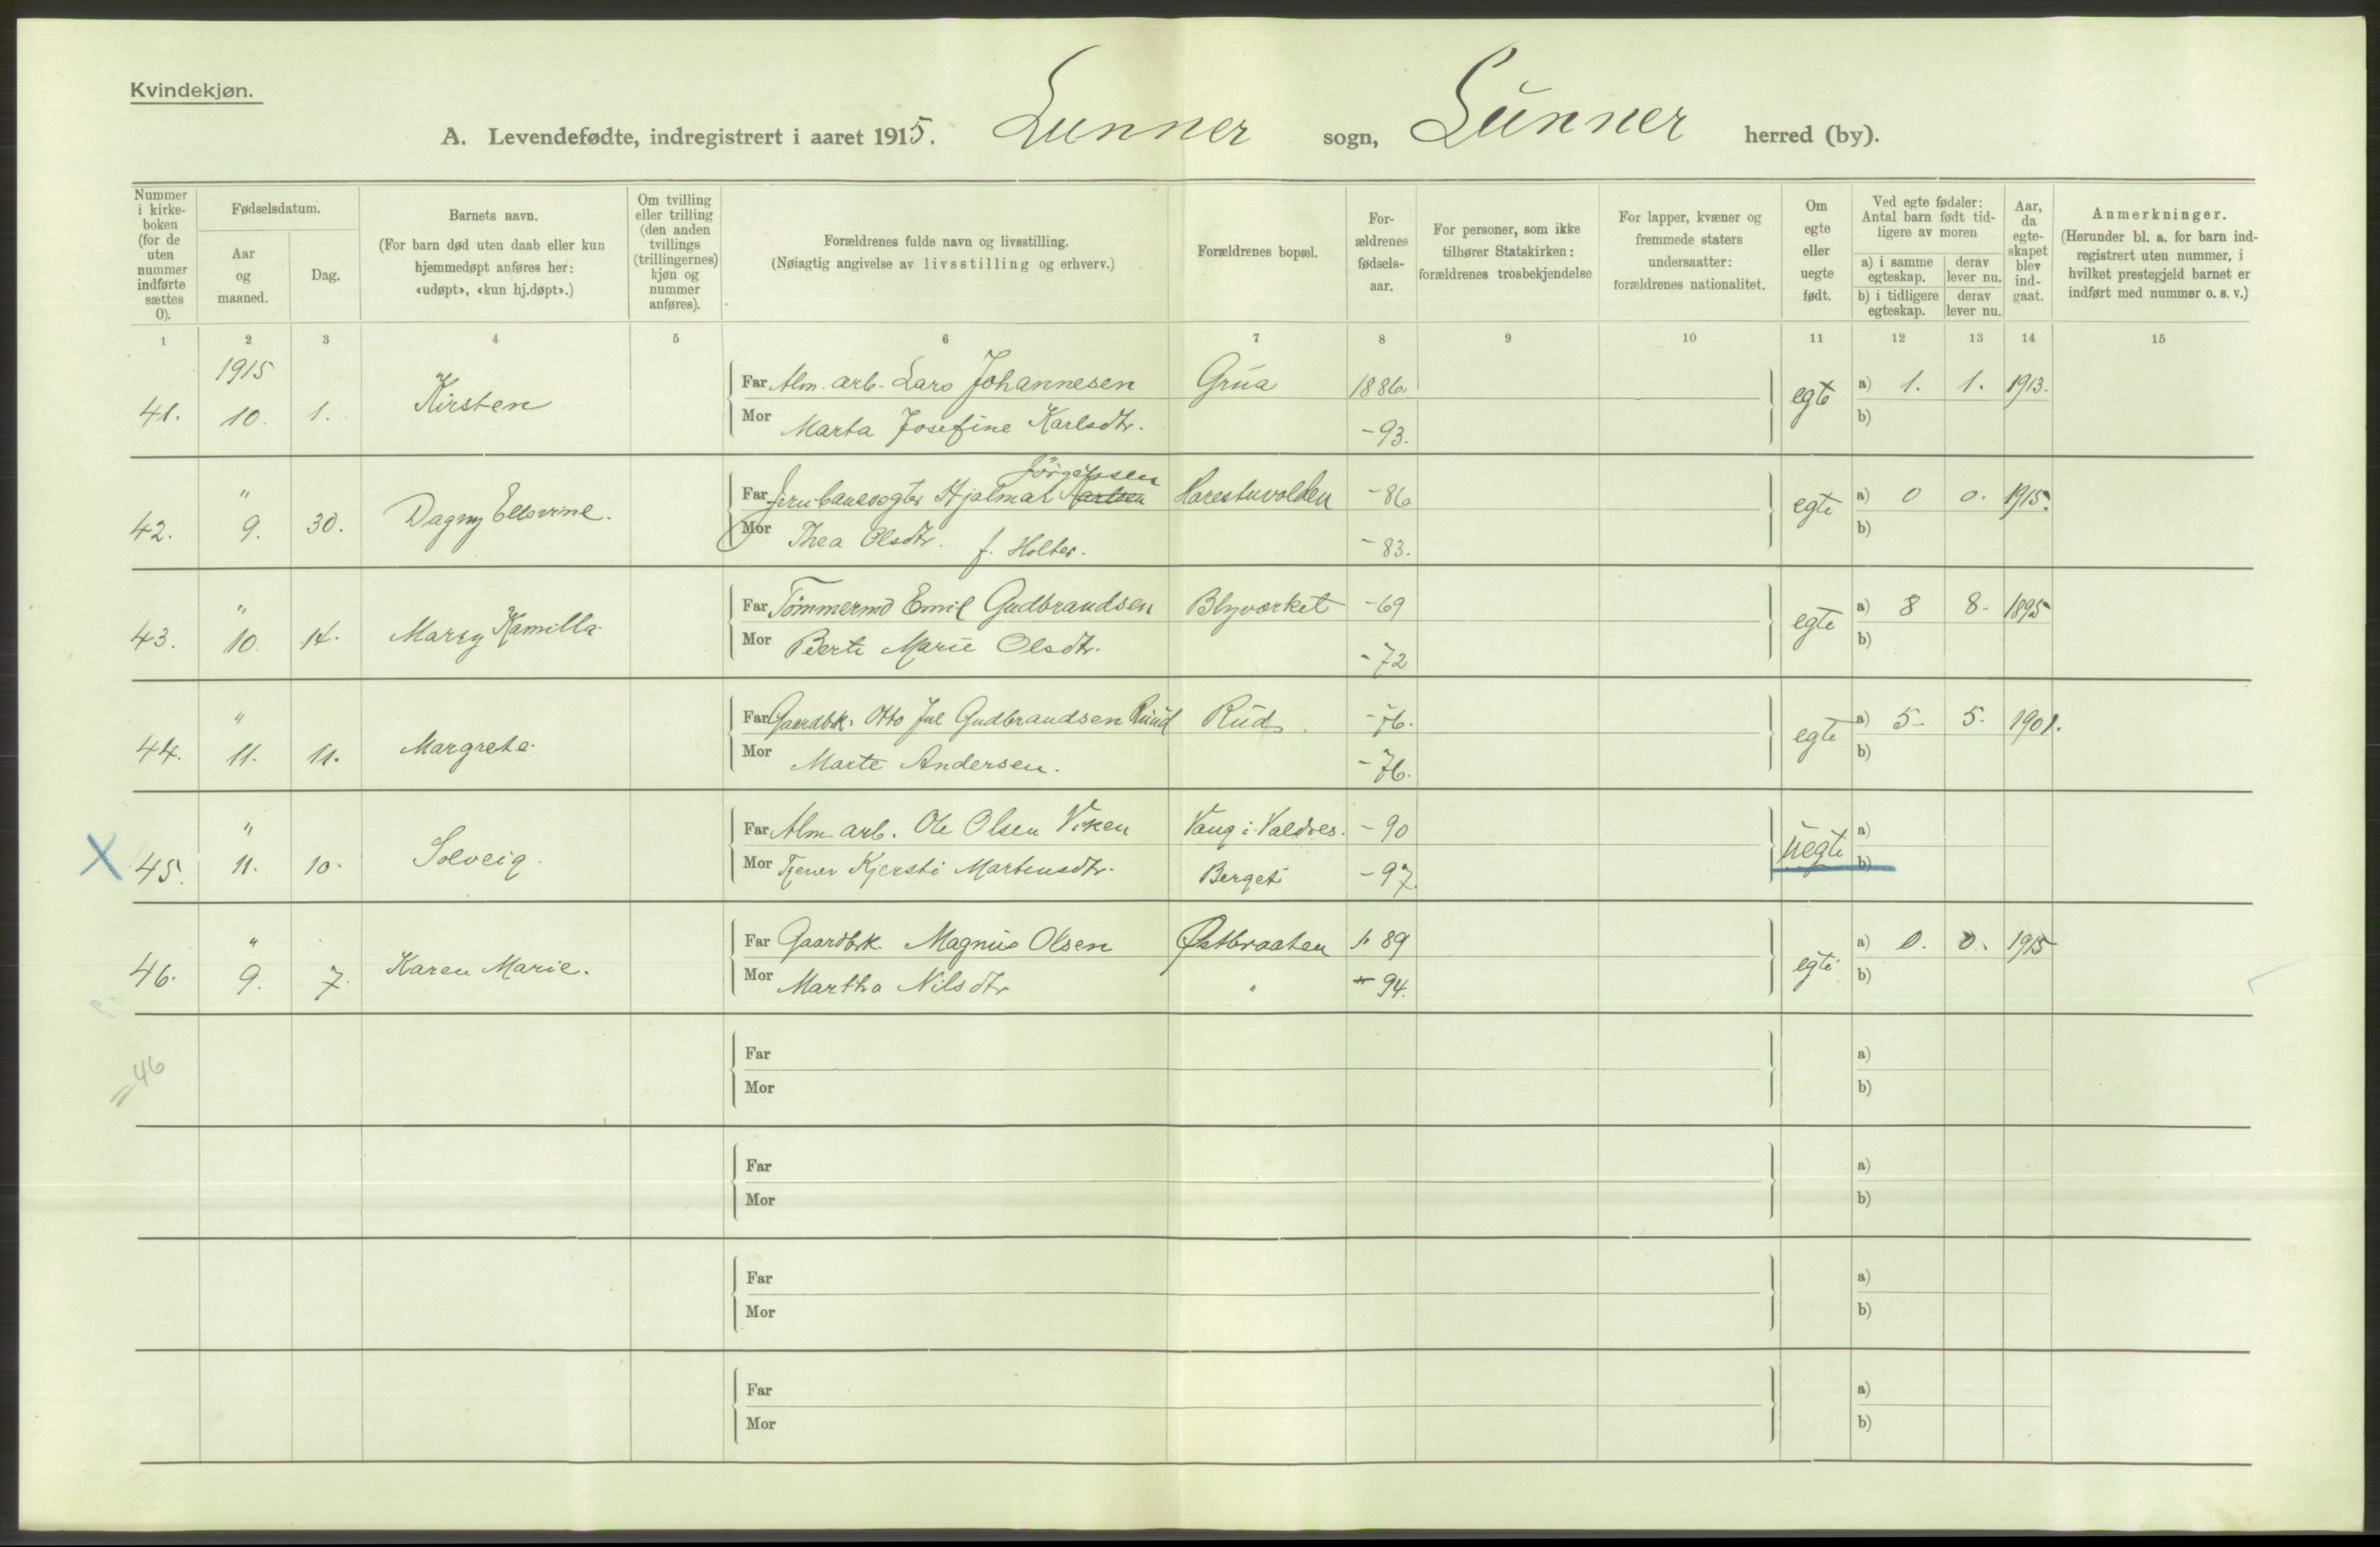 Kvindekjøn.
A. Levendefødte, indregistrert i aaret 1915. Lunner sogn, Lunner herred (by).
Nummer i kirkeboken (for de uten nummer indførte sættes 0).
Fødselsdatum.
Aar og maaned.
Dag.
Barnets navn.
(For barn død uten daab eller kun hjemmedøpt anføres her: «udøpt», «kun hj.døpt».)
Om tvilling eller trilling (den anden tvillings (trillingernes) kjøn og nummer anføres).
Forældrenes fulde navn og livsstilling.
(Nøiagtig angivelse av livsstilling og erhverv.)
Forældrenes bopæl.
Forældrenes fødselsaar.
For personer, som ikke tilhører Statskirken: forældrenes trosbekjendelse
For lapper, kvæner og fremmede staters undersaatter: forældrenes nationalitet.
Om egte eller uegte født.
Ved egte fødsler: Antal barn født tidligere av moren
a) i samme egteskap. derav lever nu.
b) i tidligere egteskap. derav lever nu.
Aar, da egteskapet blev indgaat.
Anmerkninger.
(Herunder bl. a. for barn indregistrert uten nummer, i hvilket prestegjeld barnet er indført med nummer o. s. v.)
1 2 3 4 5 6 7 8 9 10 11 12 13 14 15
1915
41. 10. 1. Kirsten Far Alm. arb. Lars Johannesen Grua 1886. egte a) 1. 1. 1913.
Mor Marta Josefine Karlsdtr. -93. b)
Jörgensen
42. " 9. 30. Dagny Far Jernbanevogter Hjalmar Harestuvolden -86 egte a) 0 0. 1915.
Mor Thea Olsdtr. f. Holter. -83. b)
43. " 10. 14. Marsy Kamilla Far Tømmermd Emil Gudbrandsen Blyværket -69 egte a) 8 8. 1895
Mor Berte Marie Olsdtr. -72 b)
44. " 11. 11. Margrete. Far Gaardbk. Otto Jul Gudbrandsen Ruud Rud. -76. egte a) 5- 5. 1901.
Mor Marte Andersen. -76. b)
X 45. " 11. 10. Solveig. Far Alm arb. Ole Olsen Viken Vang i Valdres. -90 uegte a)
Mor Tjener Kjersti Martinsdtr. Berget -97. b)
46. " 9. 7. Karen Marie. Far Gaardbrk. Magnus Olsen Østbraaten 89 egte a) 0. 0. 1915
Mor Martha Nilsdtr " 94. b)
46
Far a)
Mor b)
Far a)
Mor b)
Far a)
Mor b)
Far a)
Mor b)